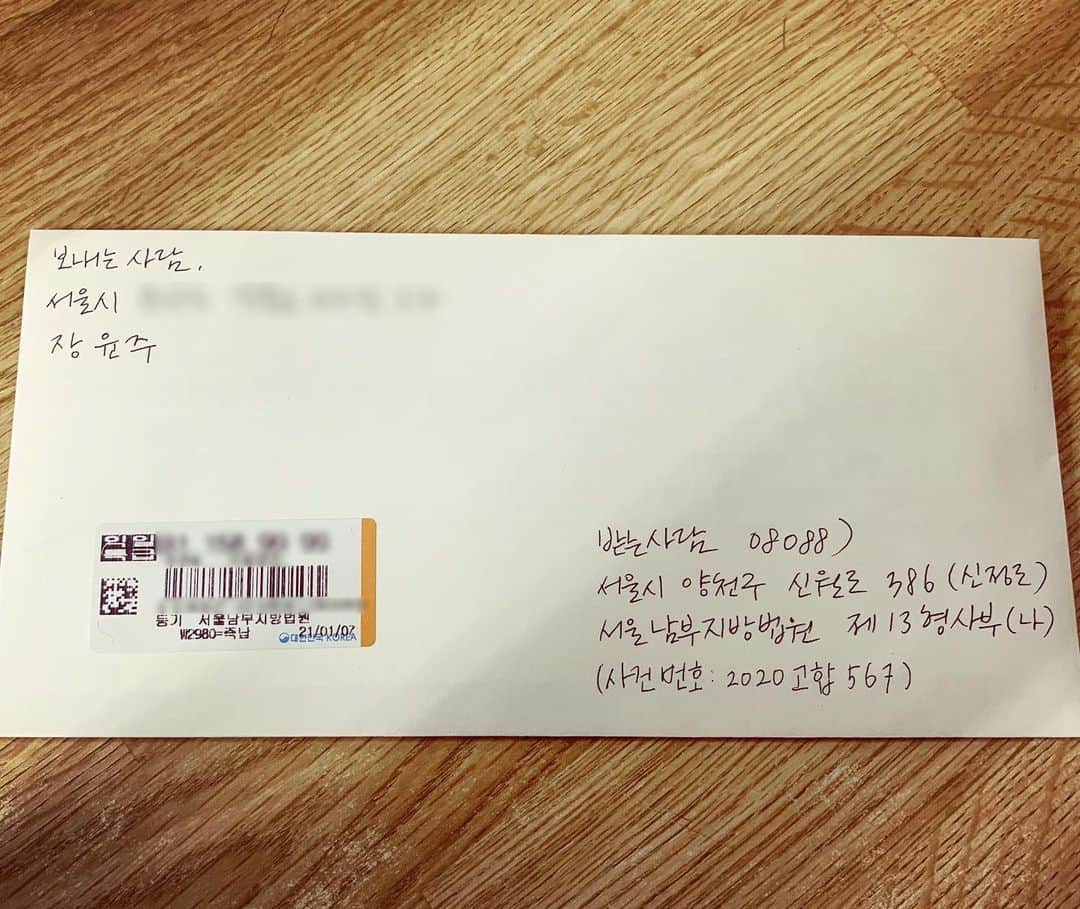 보내는 사람,
서울시
장윤주
익일
특급
등기 서울남부지방법원
₩2980=죽남 21/01/07
대한민국 KOREA
받는사람 08088)
서울시 양천구 신월로 386 (신정로)
서울남부지방법원 제13형사부(나)
(사건번호: 2020고합567)